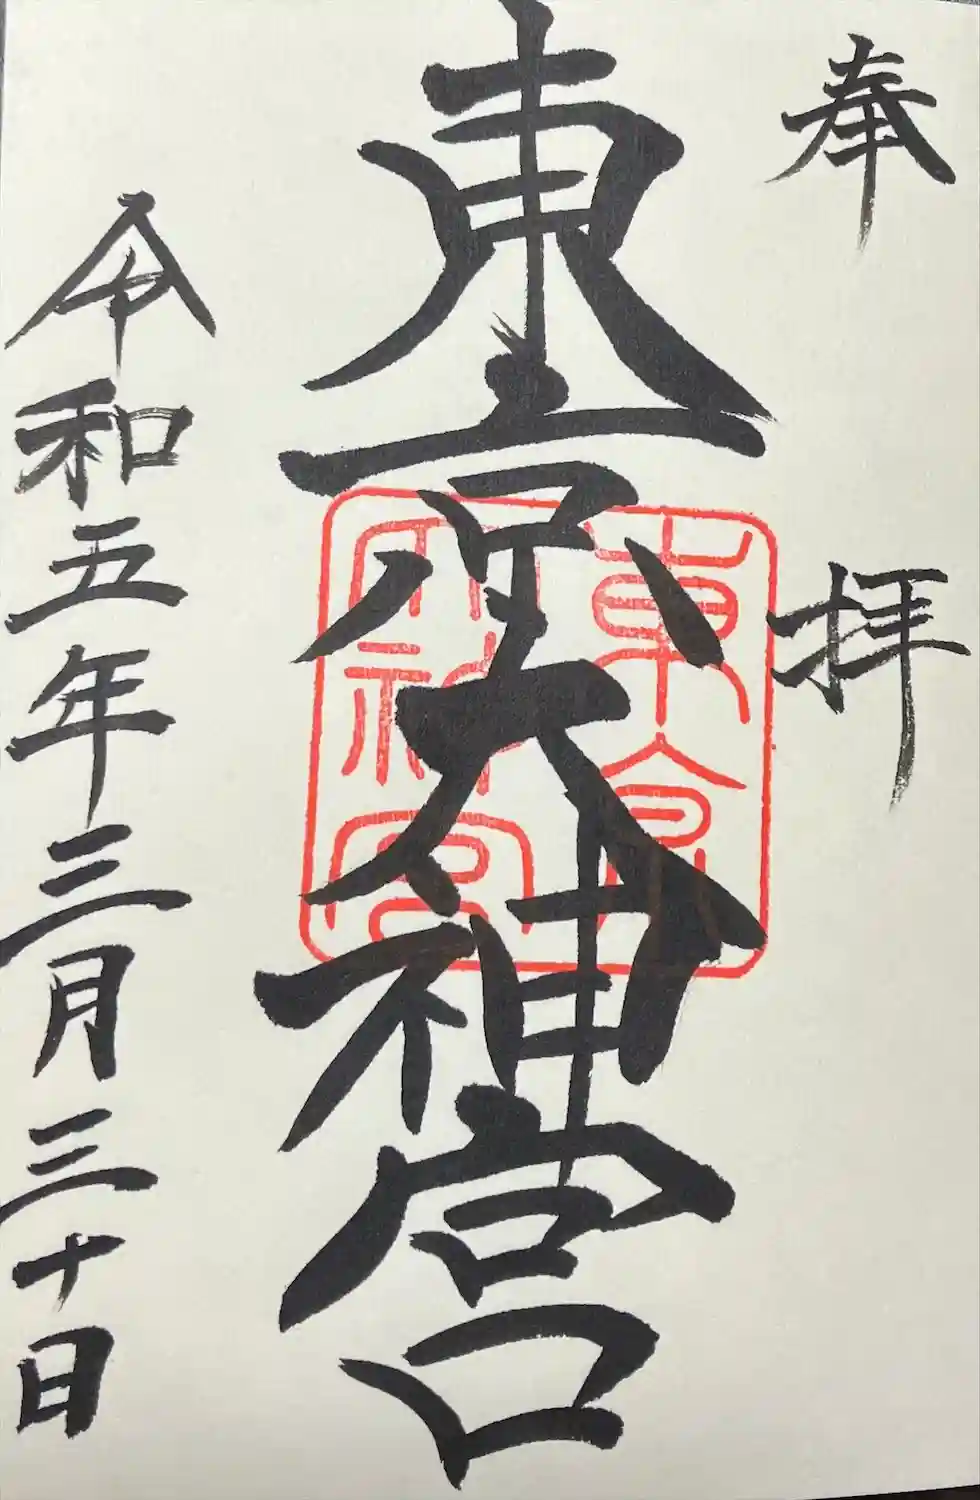 奉拝
東京大神宮
東京大神宮
令和五年三月三十日